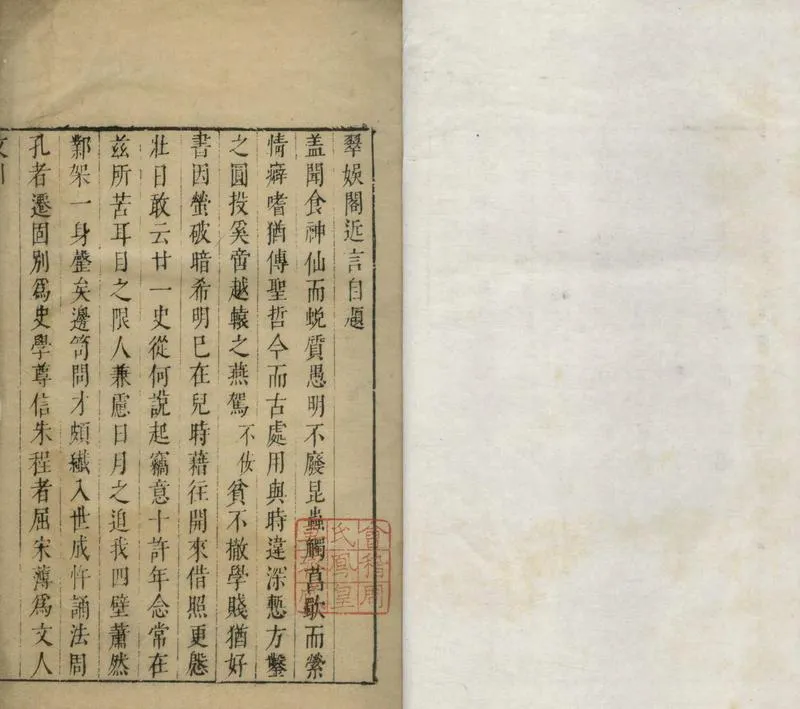 翠娛閣近言自題
盖聞食神仙而蛻質愚明不廢昆蟲觸菖歜而縈
情癖嗜猶傳聖哲今而古處用與時違深慙方鑿
之圓投奚啻越轅之燕駕不佞貧不撤學賤猶好
書因螢破暗希明已在兒時藉往開來借照更慇
壯日敢云廿一史從何說起竊意十許年念常在
茲所苦耳目之限人兼慮日月之迫我四壁蕭然
鄴架一身罄矣邊笥問才頗纎入世成忤誦法周
孔者遷固別為史學尊信朱程者屈宋薄為文人
會稽周
氏鳳皇